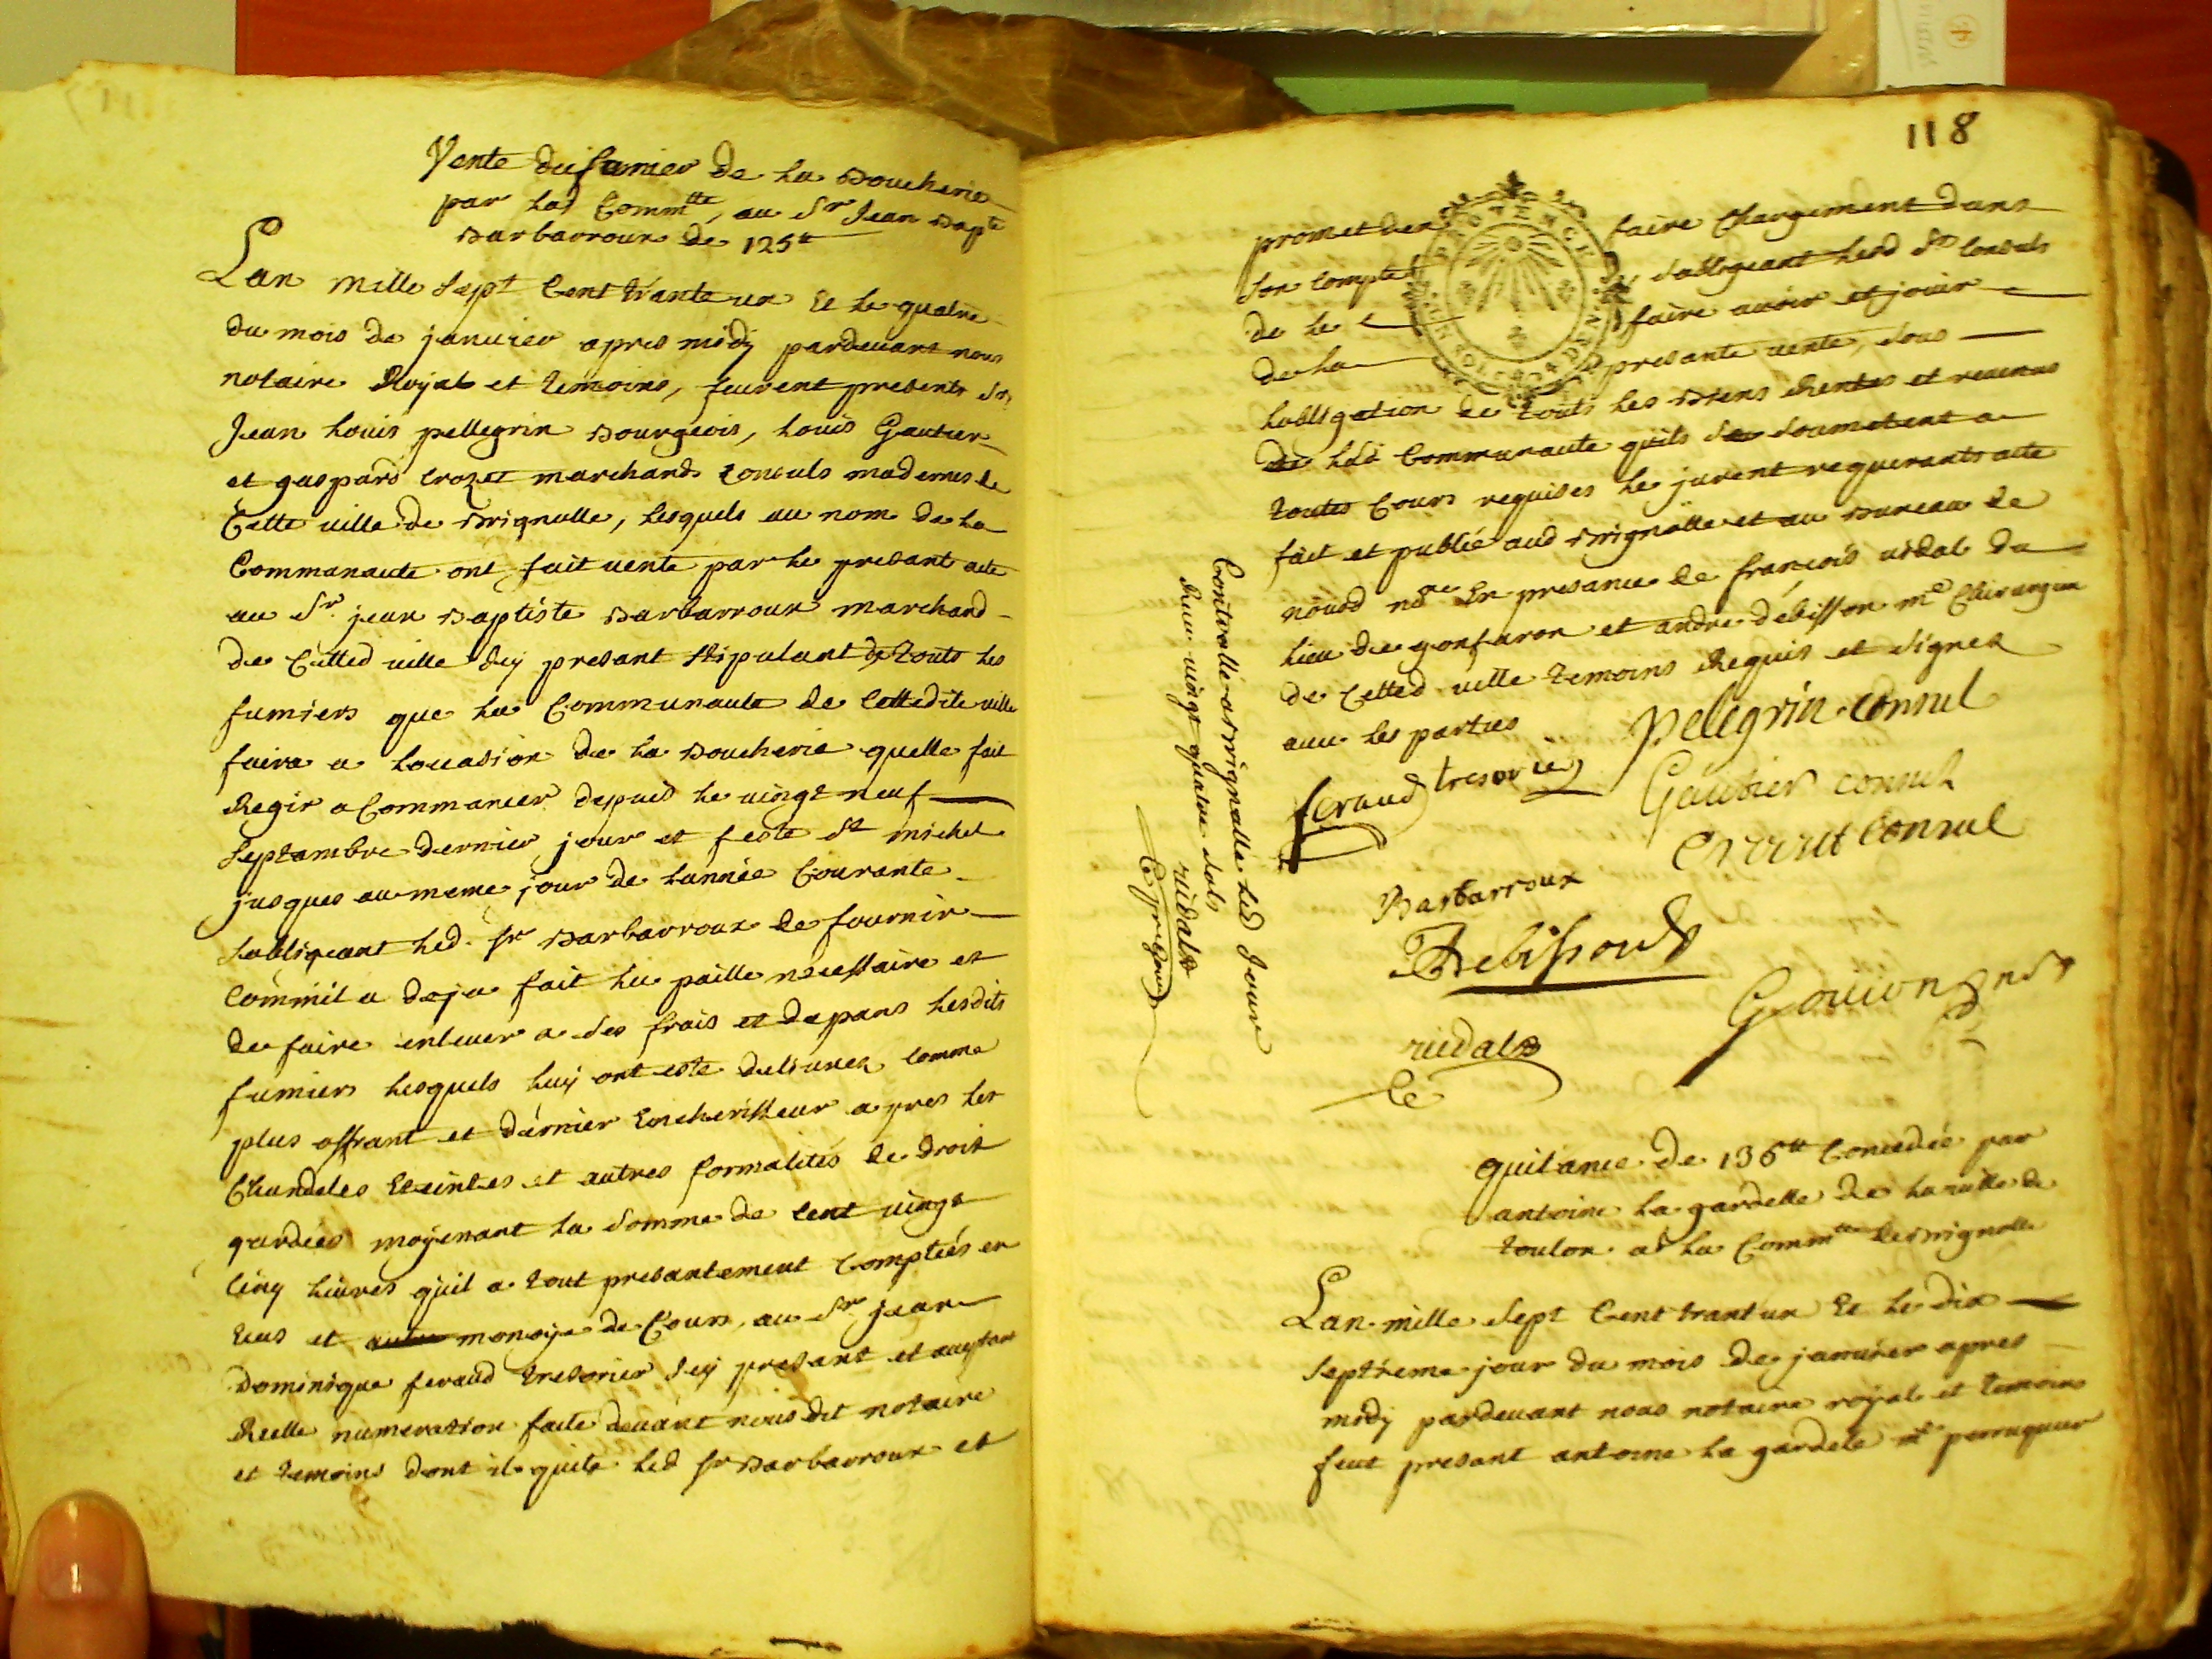 Vente du fumier de la Boucherie
par lad Comm.tte, au Sr Jean Bapte
Barbarroux de 125tt
Lan mille sept Cent trante un Et le quatre
du mois de janvier apres midy pardevant nous
notaire Royal et temoins, feurent presents Srs
Jean Louis pellegrin Bourgeois, Louis Gautier
et gaspard Crozet marchands Consuls modernes de
Cette ville de Brignolle, lesquels au nom de la
Communaute ont fait vente par le presant acte
au Sr. jean Baptiste Barbarroux marchand
de Cetted ville Icy presant stipulant de touts les
fumiers que la Communaute de Cettedite ville
faira a locasion de la Boucherie quelle fait
Regir a Commancer depuis le vingt neuf
Septambre dernier jour et feste St michel
jusques au meme jour de lannée Courante
sobligeant led. Sr Barbarroux de fournir
Comm'il a deja fait la paille necessaire et
de faire enlever a ses frais et depans lesdits
fumiers lesquels luy ont esté delivrez Comme
plus offrant et dernier Encherisseur apres les
Chandeles Eteintes et autres formalités de droit
gardées moyenant la Somme de Cent vingt
Cinq livres quil a tout presantement Comptées en
Ecus et monoye de Cours, au Sr jean
Dominique feraud tresorier Icy presant et aceptant
Reelle numeration faite devant nous dit notaire
et temoins dont il quite led Sr Barbarroux et
118
promet den faire Chargement dans
son Compte sobligeant lesd Srs Consuls
de le faire avoir et jouir
de la presante vente, sous
lobligation de touts les Biens Rentes et revenus
de lad Communaute quils soumetent a
toutes Cours requises le jurent requerants acte
fait et publié aud Brignolle et au Bureau de
nousd nore En presance de françois vidal du
lieu de gonfaron et andre debisson me Chirurgien
de Cetted ville temoins Requis et signez
avec les parties
pelegrin Consul
feraud tresorier
Gautier Consul
Crozet Consul
Barbarroux
Debisson
Gouion
vidal
Controllé a Brignolle led Jour
vingt quatre sols
vidal
quitance de 136tt Concedée par
antoine la gardelle de la ville de
toulon a la Commtte de Brignolle
Lan mille Sept Cent trant un Et le dix
septieme jour du mois de janvier apres
midy pardevant nous notaire royal et temoins
feut presant antoine la gardele me perruquier